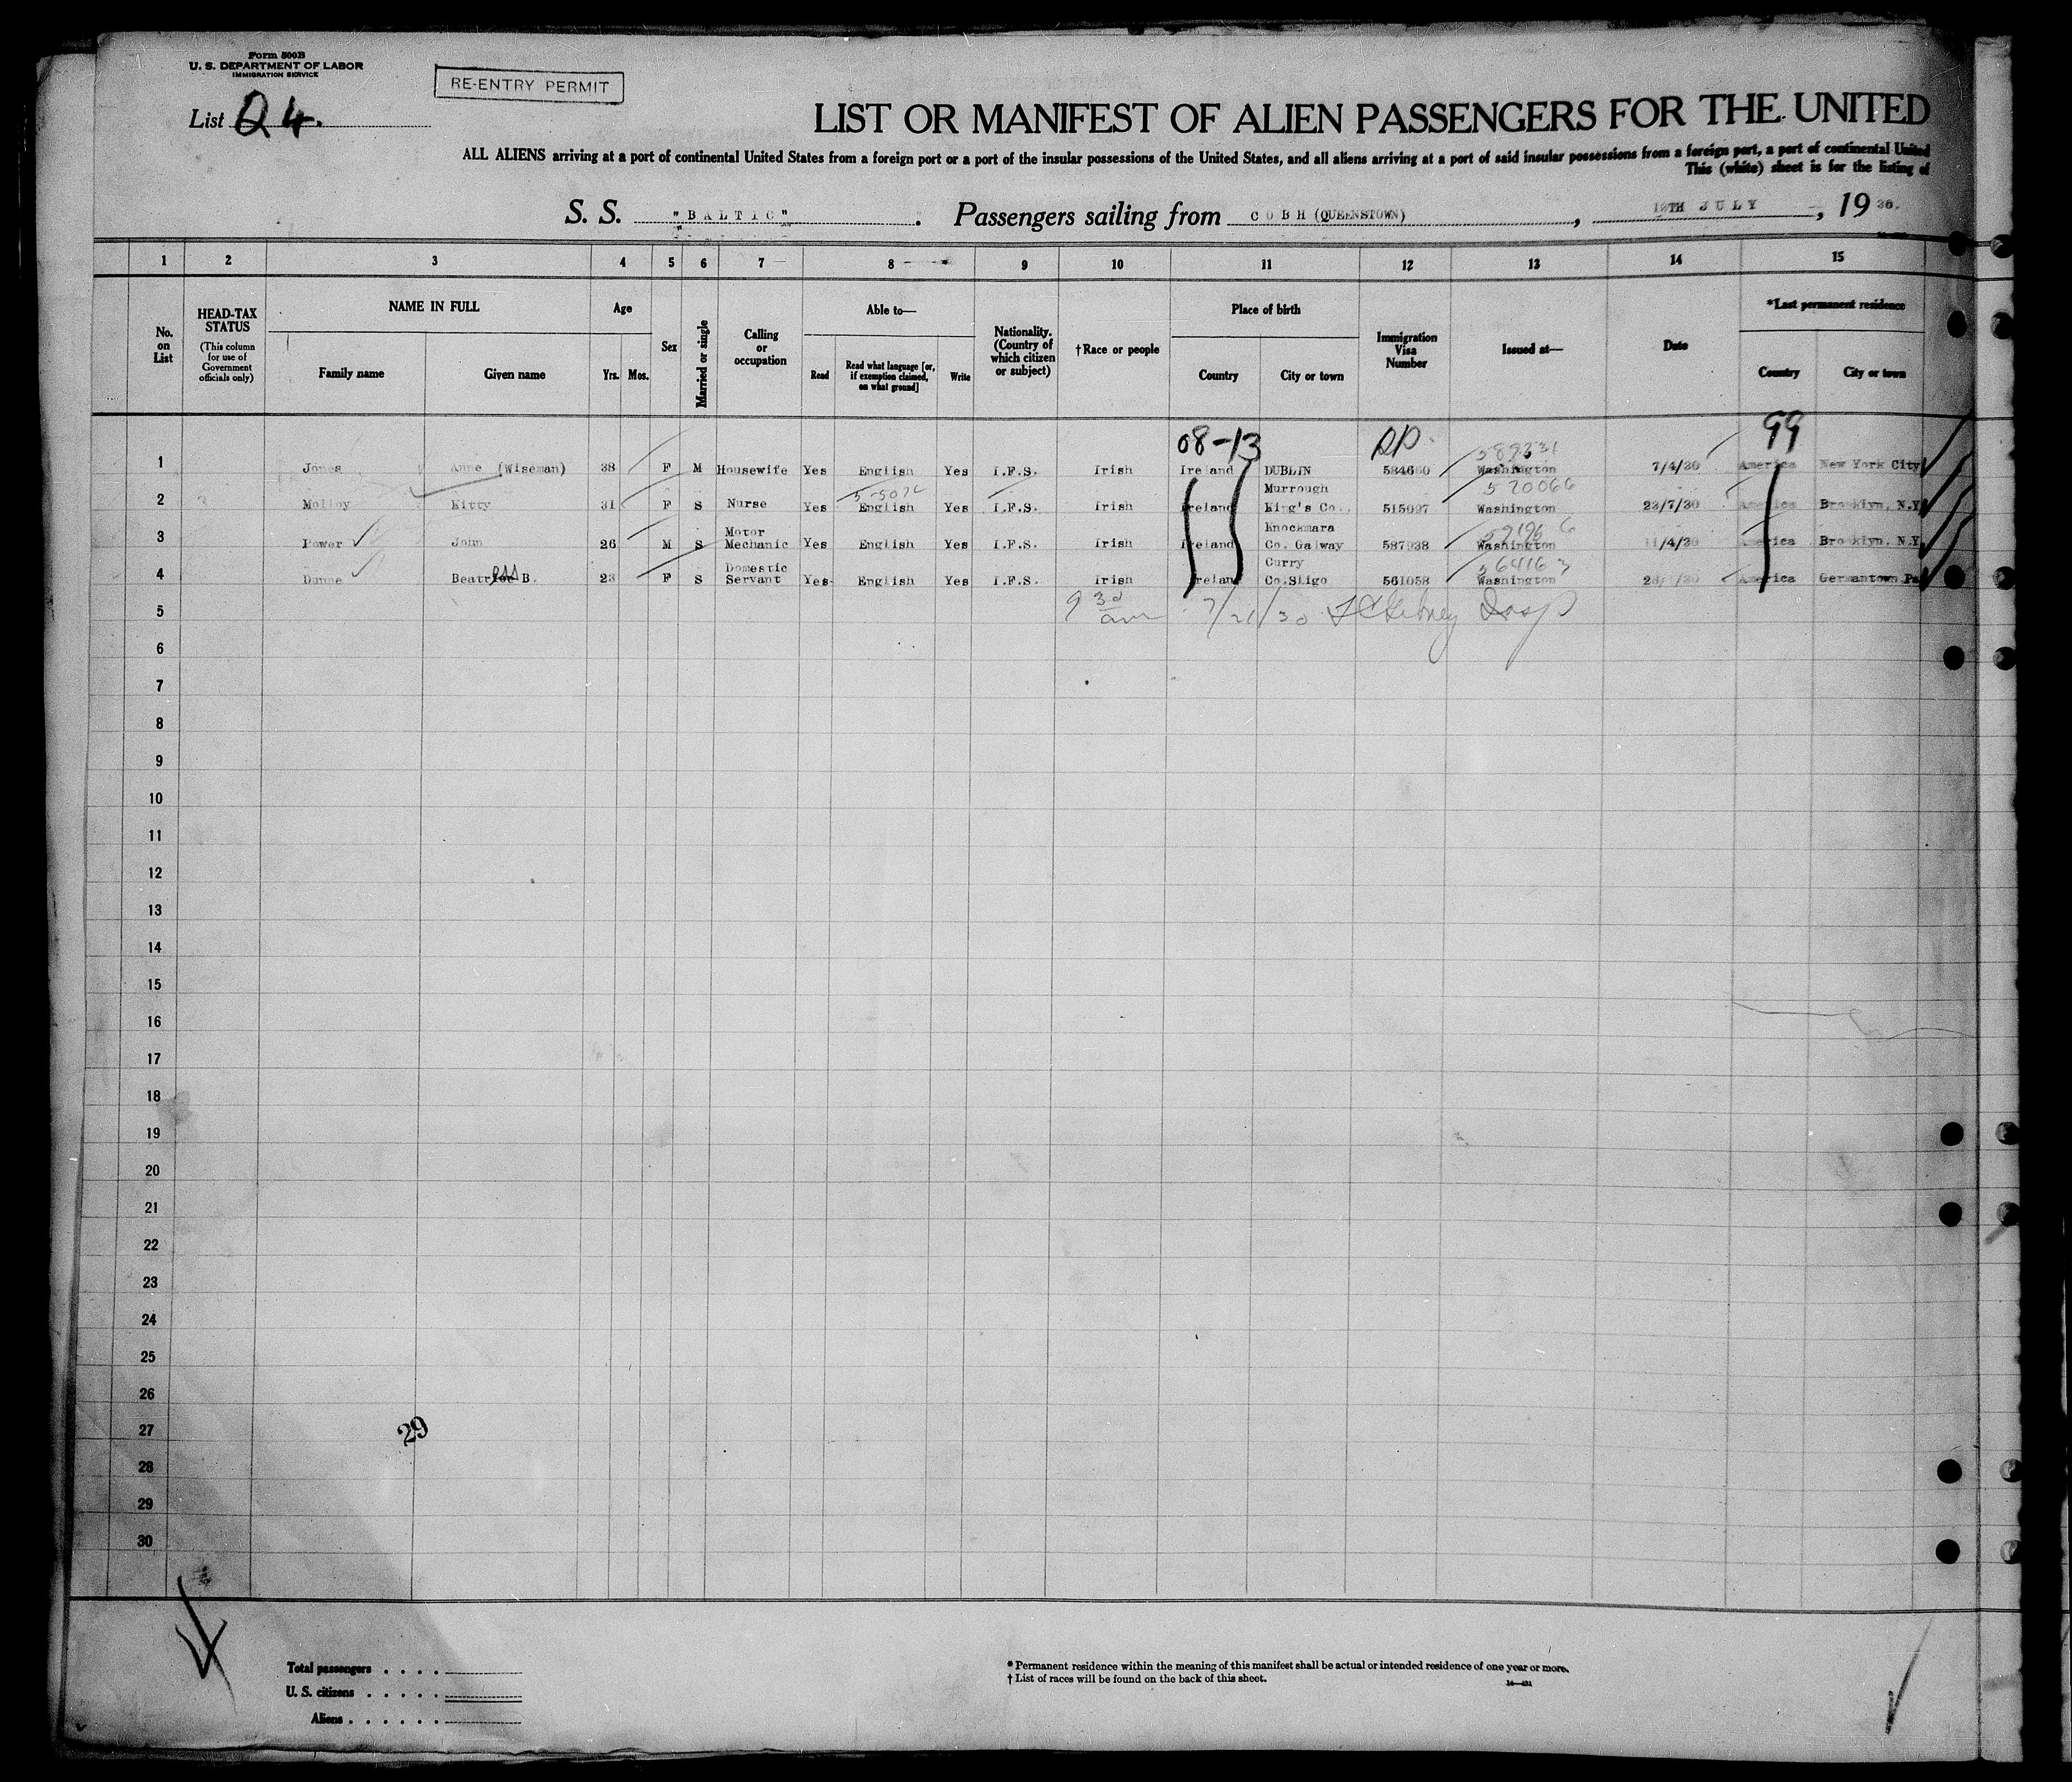 Form 500B
U. S. DEPARTMENT OF LABOR
IMMIGRATION SERVICE
RE-ENTRY PERMIT
List Q 4.
LIST OR MANIFEST OF ALIEN PASSENGERS FOR THE UNITED
ALL ALIENS arriving at a port of continental United States from a foreign port or a port of the insular possessions of the United States, and all aliens arriving at a port of said insular possessions from a foreign port, a port of continental United
This (white) sheet is for the listing of
S. S. "BALTIC". Passengers sailing from COBH (QUEENSTOWN), JULY, 1930.
1 2 3 4 5 6 7 8 9 10 11 12 13 14 15
No. on List
HEAD-TAX STATUS (This column for use of Government officials only)
NAME IN FULL
Family name Given name
Age
Yrs. Mos.
Sex
Married or single
Calling or occupation
Able to—
Read Read what language [or, if exemption claimed, on what ground] Write
Nationality. (Country of which citizen or subject)
†Race or people
Place of birth
Country City or town
Immigration Visa Number
Issued at—
Date
*Last permanent residence
Country City or town
08-13 RP. 99
1 Jones Anne (Wiseman) 38 F M Housewife Yes English Yes I.F.S. Irish Ireland DUBLIN Washington 7/4/30 America New York City
Murrough 520066
2 Molloy Kitty 31 F S Nurse Yes English Yes I.F.S. Irish Ireland King's Co. 515097 Washington 23/7/30 America Brooklyn, N.Y.
Motor Knockmara
3 Power John 26 M S Mechanic Yes English Yes I.F.S. Irish Ireland Co. Galway 587938 Washington 11/4/30 America Brooklyn, N.Y.
Domestic Curry 564163
4 Dunne Beatress B. 23 F S Servant Yes English Yes I.F.S. Irish Ireland Co.Sligo 561058 Washington America Germantown Pa
5 9 30 am 7/21/30
6
7
8
9
10
11
12
13
14
15
16
17
18
19
20
21
22
23
24
25
26
27 29
28
29
30
Total passengers . . . .
U. S. citizens . . . . .
Aliens . . . . . .
* Permanent residence within the meaning of this manifest shall be actual or intended residence of one year or more.
† List of races will be found on the back of this sheet.